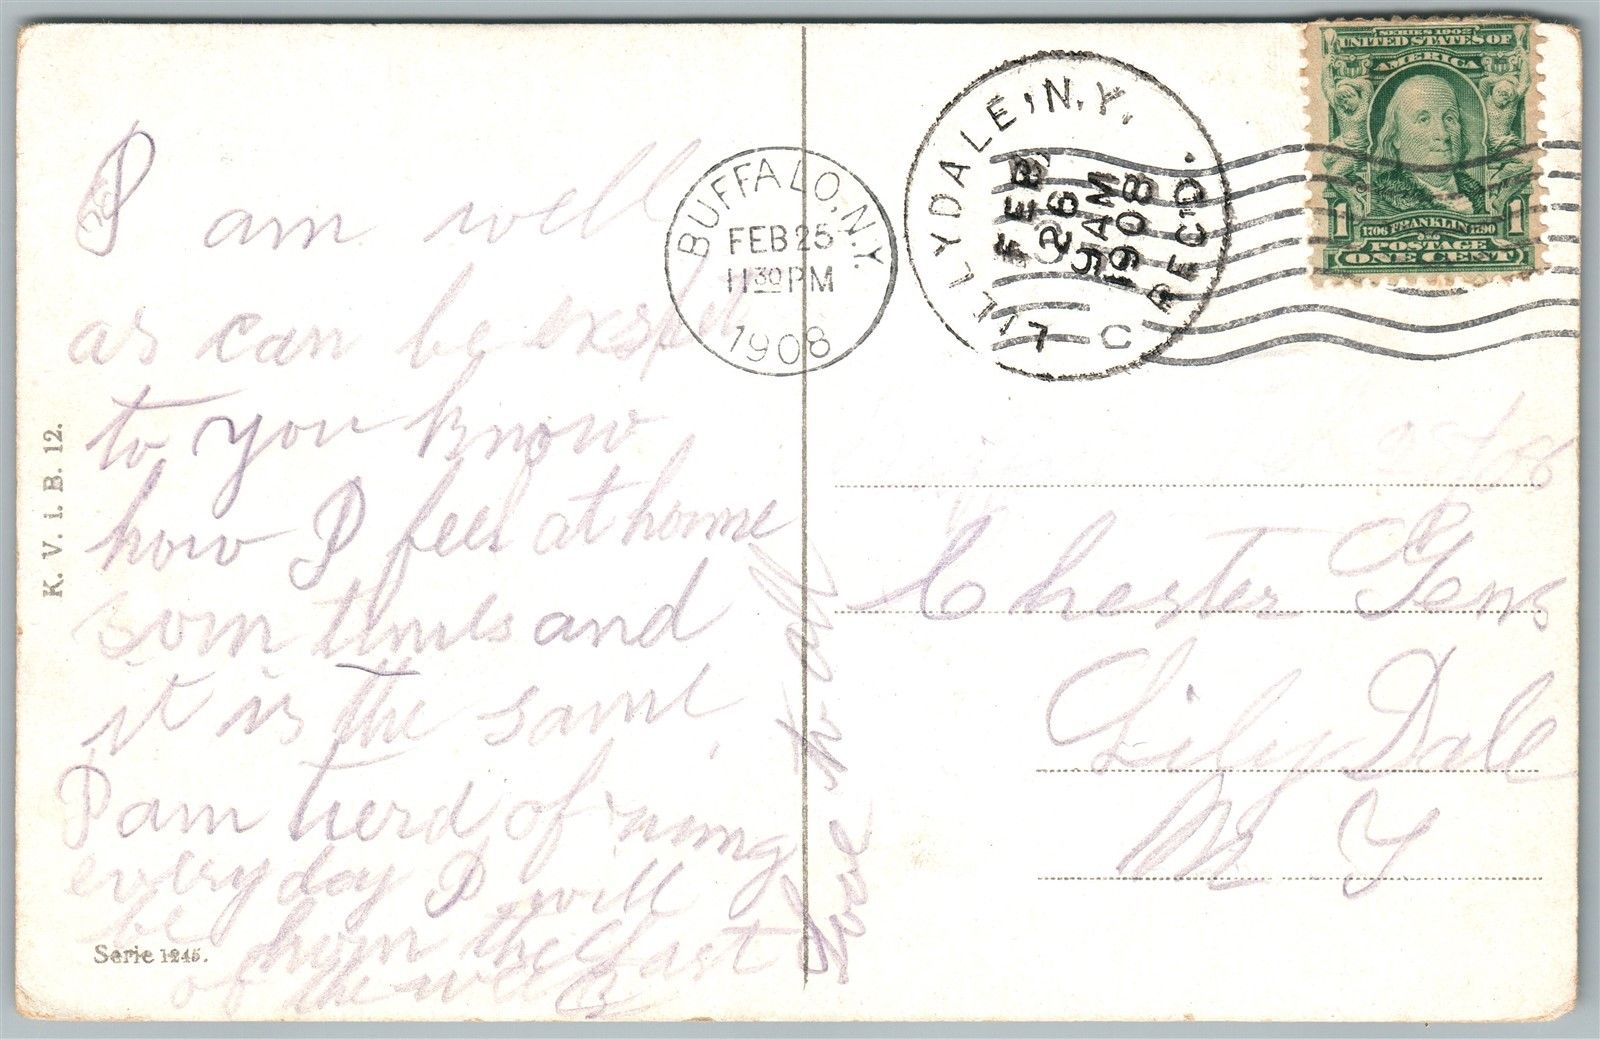 I am well
as can be exspet
to you know
how I feel at home
som times and
it is the same
I am tierd of
every day I will
be hom the last
of the week
love to all
K. V. i. B. 12.
Serie 1245.
BUFFALO, N.Y.
FEB 25
11 30 PM
1908
LILLYDALE, N.Y.
FEB
26
9 AM
1908
REC'D.
C
SERIES 1902
UNITED STATES OF
AMERICA
1 1
1706 FRANKLIN 1790
POSTAGE
ONE CENT
Chester Gens
Lily Dale
N Y